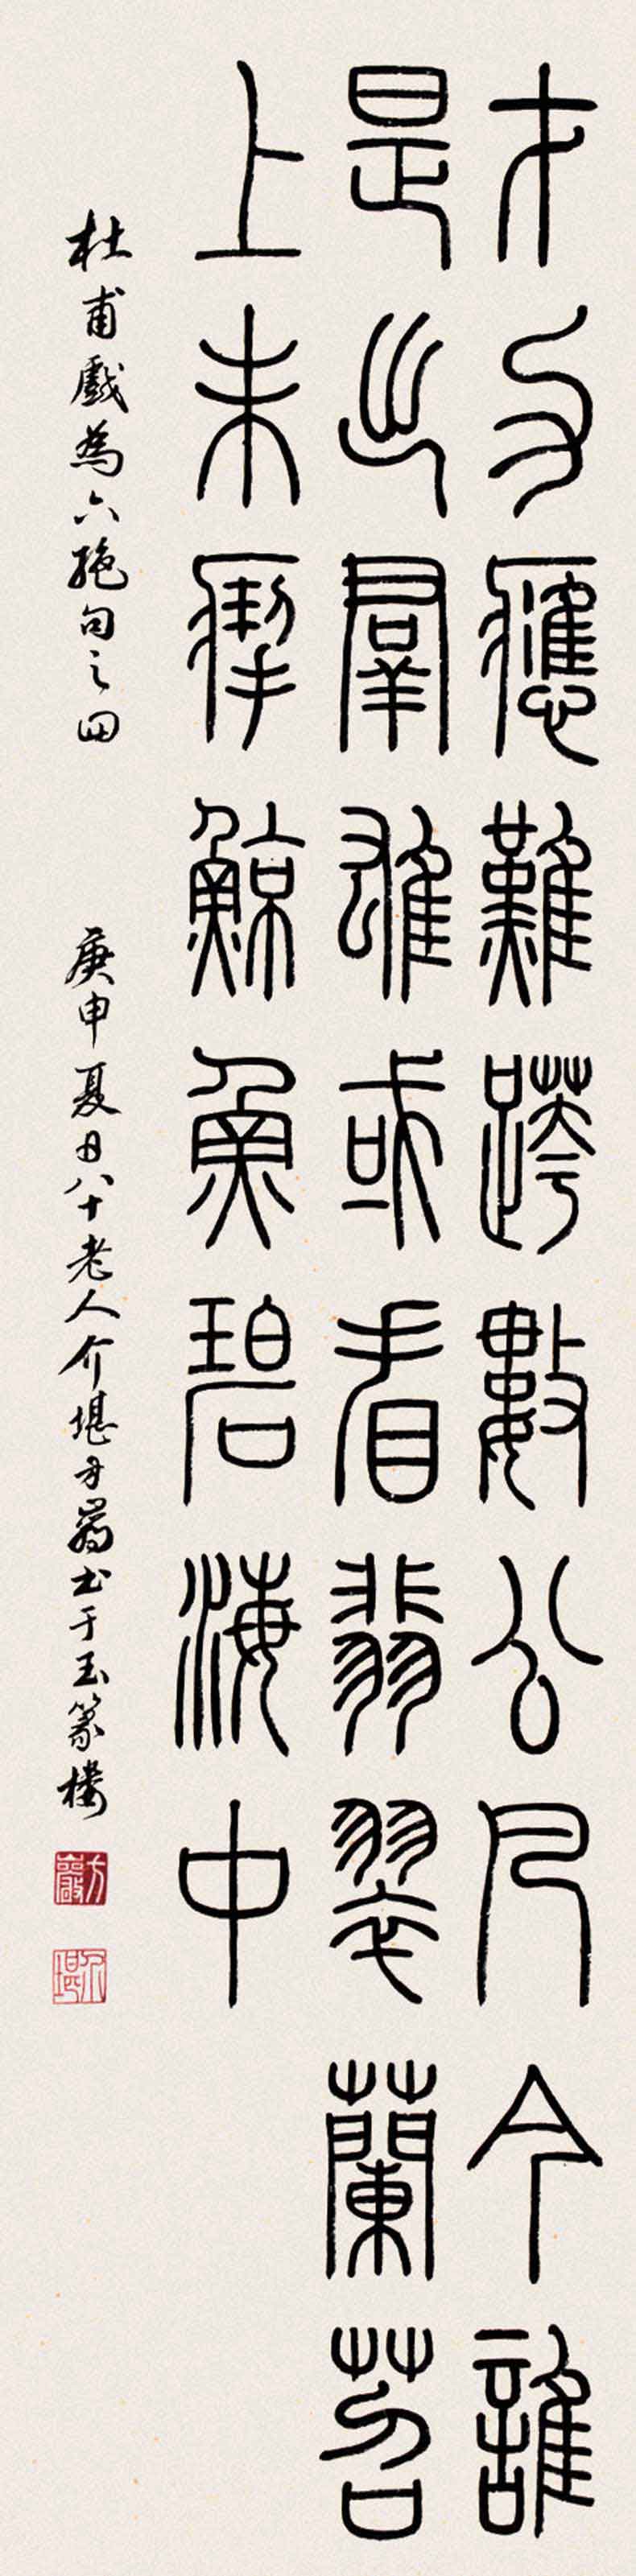 才力應難跨數公凡今誰
是出羣雄或看翡翠蘭苕
上未掣鯨魚碧海中
杜甫戲為六絕句之四
庚申夏日八十老人介堪方巖書于玉篆樓
方巖
介堪